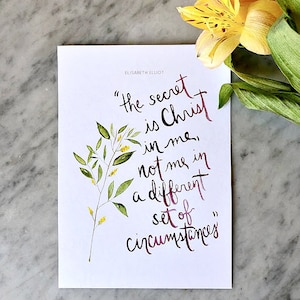 ELISABETH ELLIOT
"the secret
is Christ
in me,
not me in
a different
set of
circumstances"